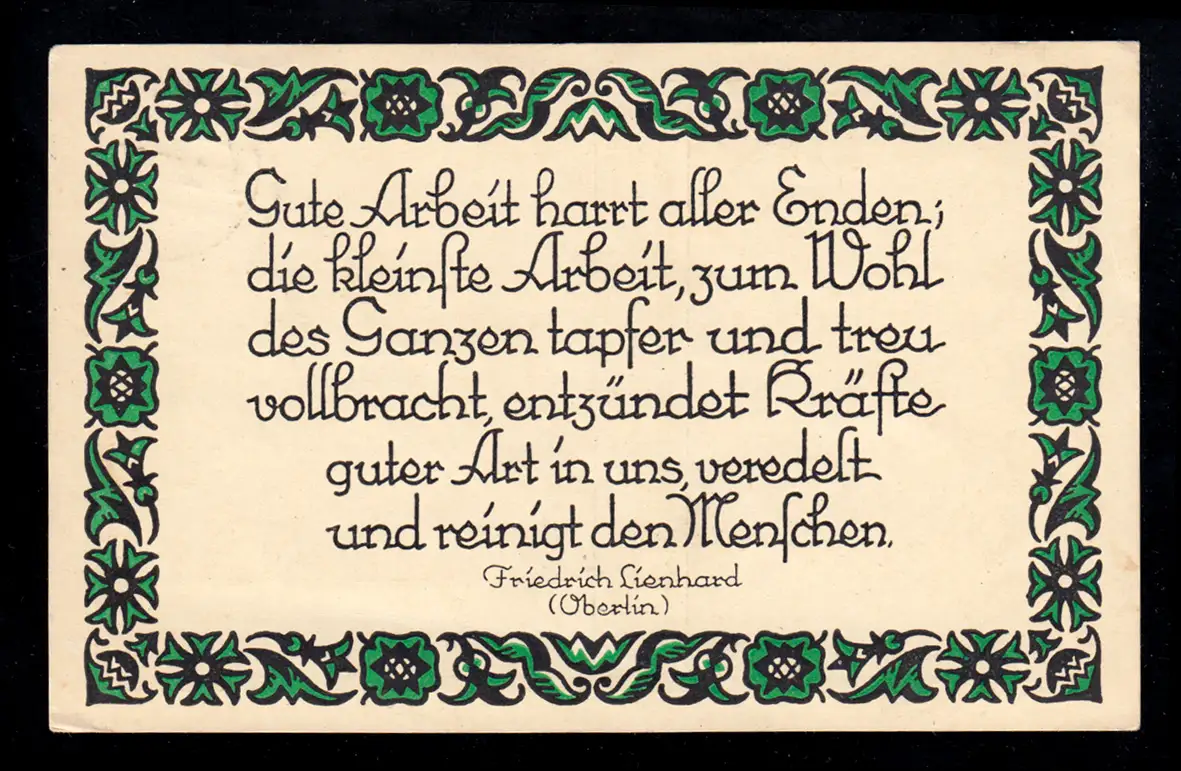 Gute Arbeit harrt aller Enden;
die kleinſte Arbeit, zum Wohl
des Ganzen tapfer und treu
vollbracht, entzündet Kräfte
guter Art in uns, veredelt
und reinigt den Menſchen.
Friedrich Lienhard
(Oberlin)